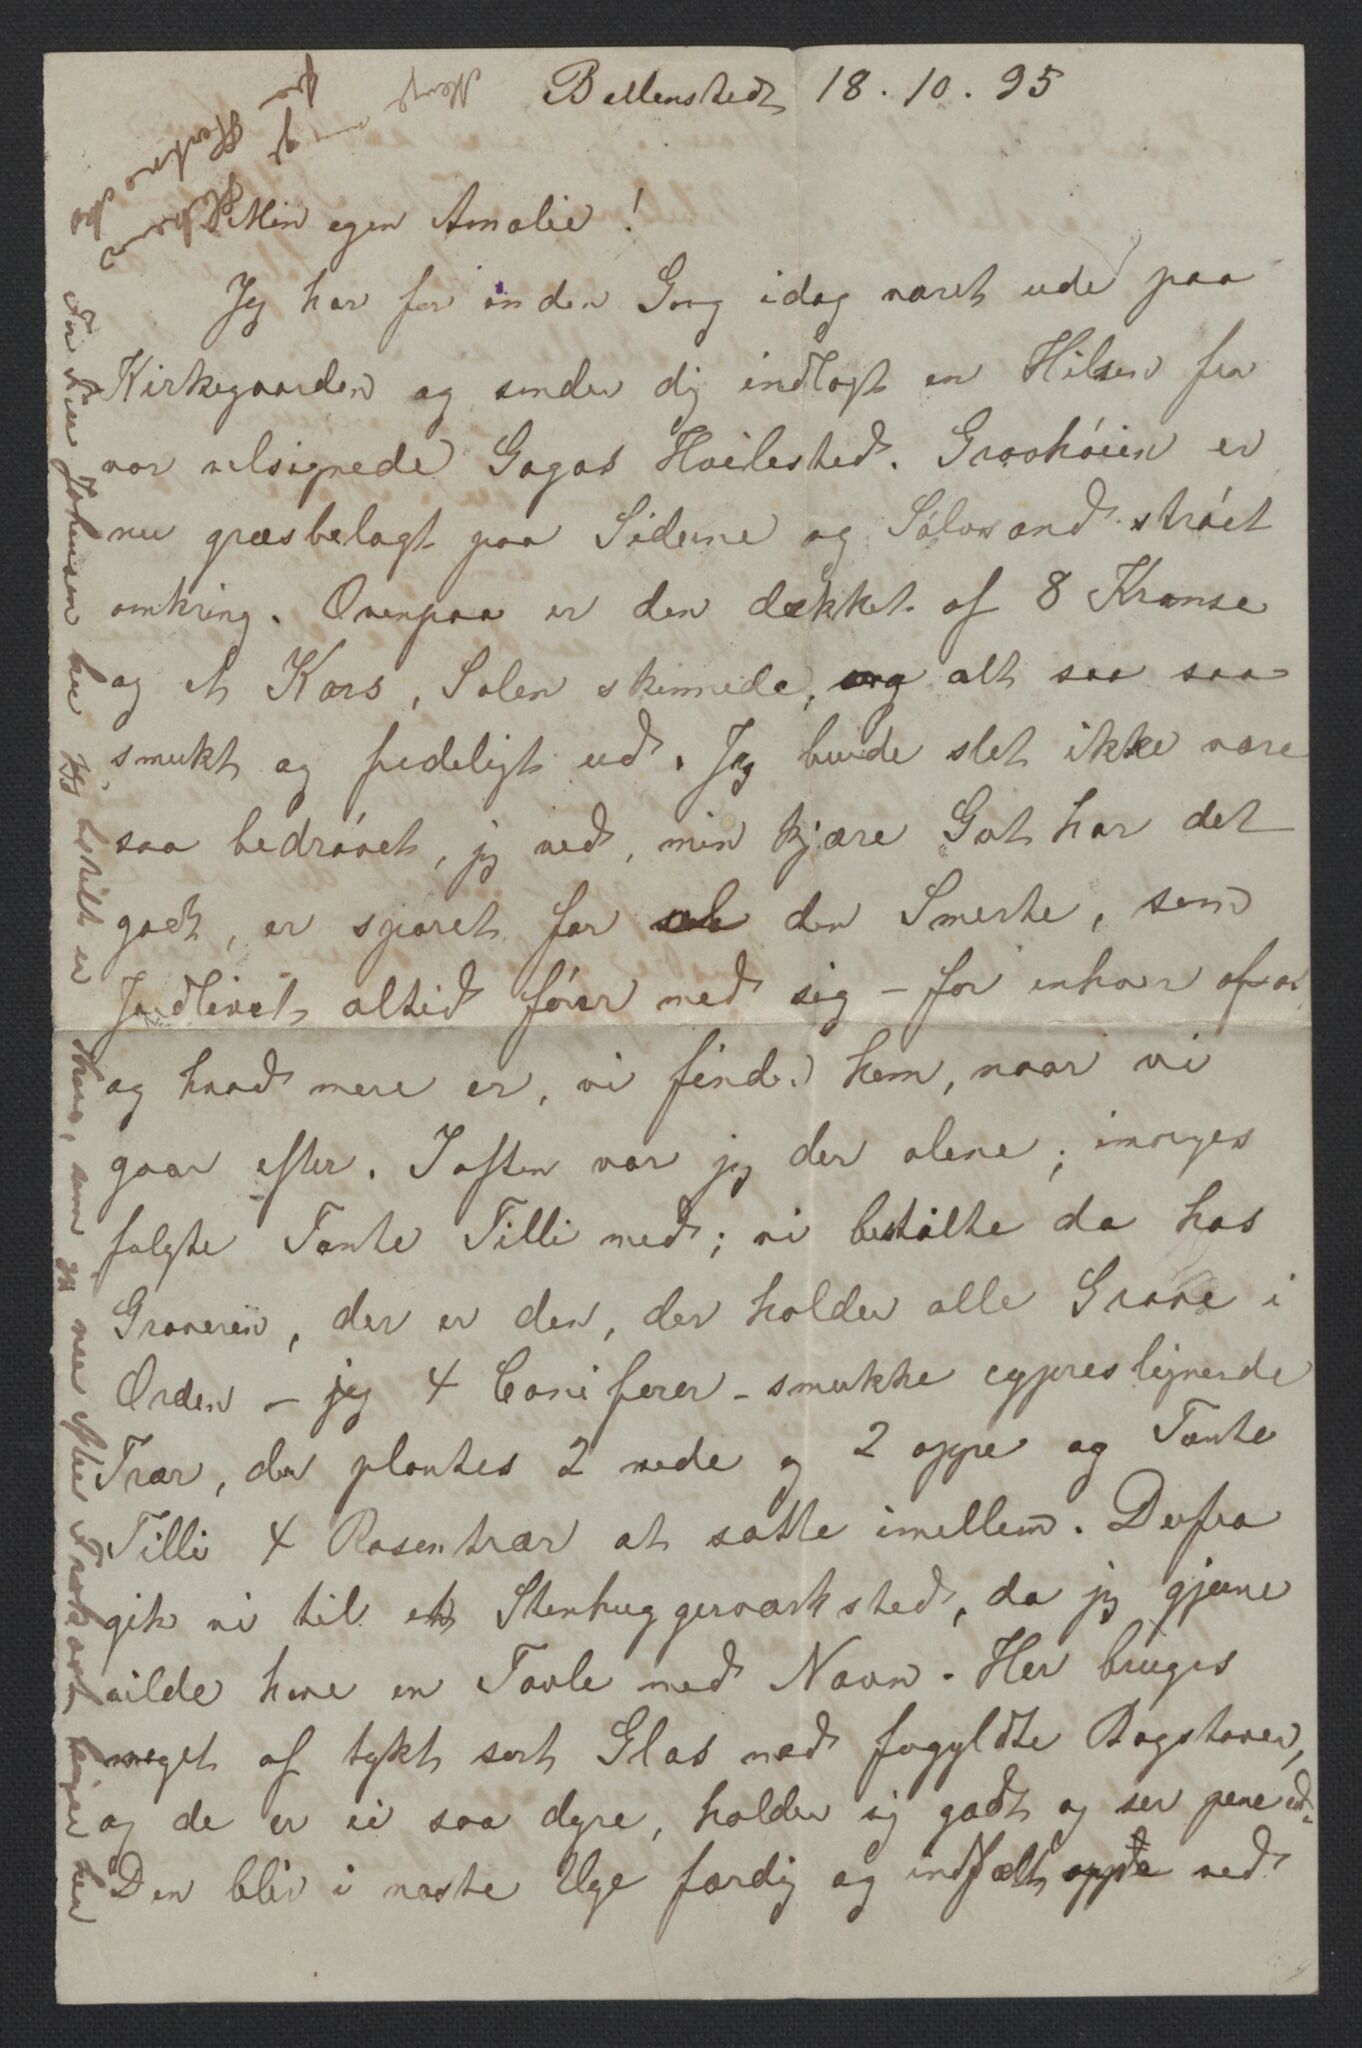 Ballenstedt 18.10.95
Min egen Amalie!
Jeg har for anden Gang idag været ude paa
Kirkegaarden og sender dig indlagt en Hilsen fra
vor velsignede Gogos Hvilested. Gravhøien er
nu græsbelagt paa Siderne og Sølvsand strøet
omkring. Ovenpaa er den dækket af 8 Kranse
og et Kors, Solen skinnede, og alt saa saa
smukt og fredeligt ud. Jeg burde slet ikke være
saa bedrøvet, jeg ved, min kjære Gut har det
godt, er sparet for den Smerte, som
Jordlivet altid fører med sig – for enhver af os
og hvad mere er, vi finder ham, naar vi
gaar efter. Iaften var jeg der alene; imorges
fulgte Tante Tilli med; vi bestilte da hos
Graveren, der er den, der holder alle Grave i
Orden – jeg 4 Coniferer – smukke cypreslignende
Trær, der plantes 2 nede og 2 oppe og Tante
Tilli 4 Rosentrær at sætte imellem. Derfra
gik vi til et Stenhuggerværksted, da jeg gjerne
vilde have en Tavle med Navn. Her bruges
meget af tykt sort Glas med forgyldte Bogstaver,
og de er ei saa dyre, holder sig godt og ser pene ud.
Den bliver i næste Uge færdig og indfældt oppe ved
Fru Johnsen har jeg hilst er hos, som jeg nu efter Frokost her